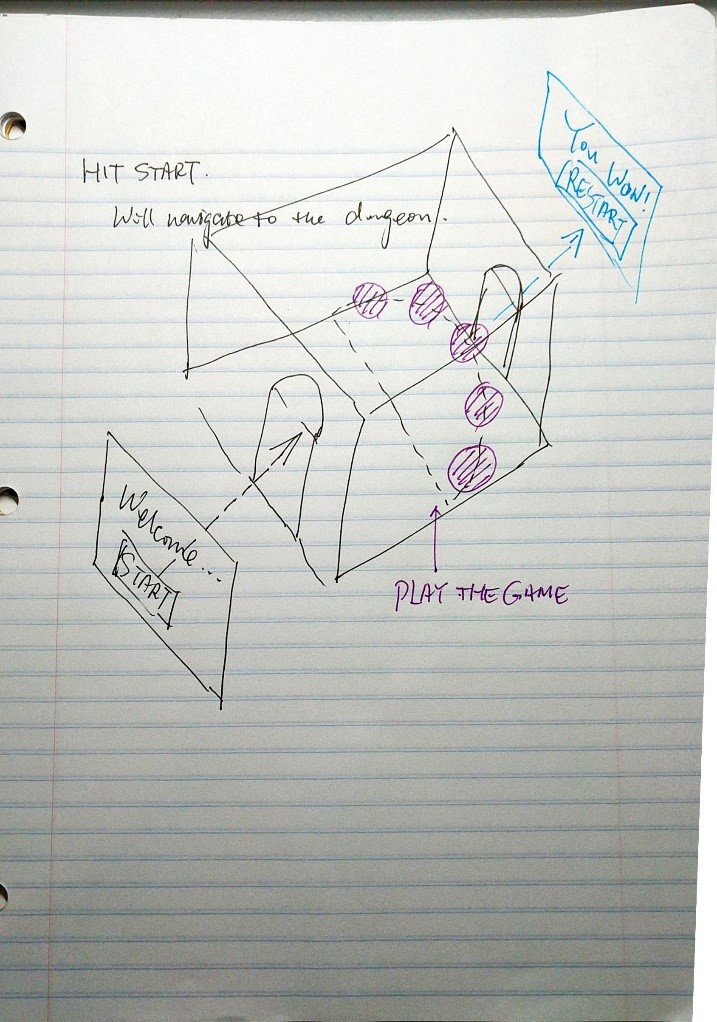 HIT START.
Will navigate to the dungeon.
You WON!
RESTART
Welcome...
START
PLAY THE GAME